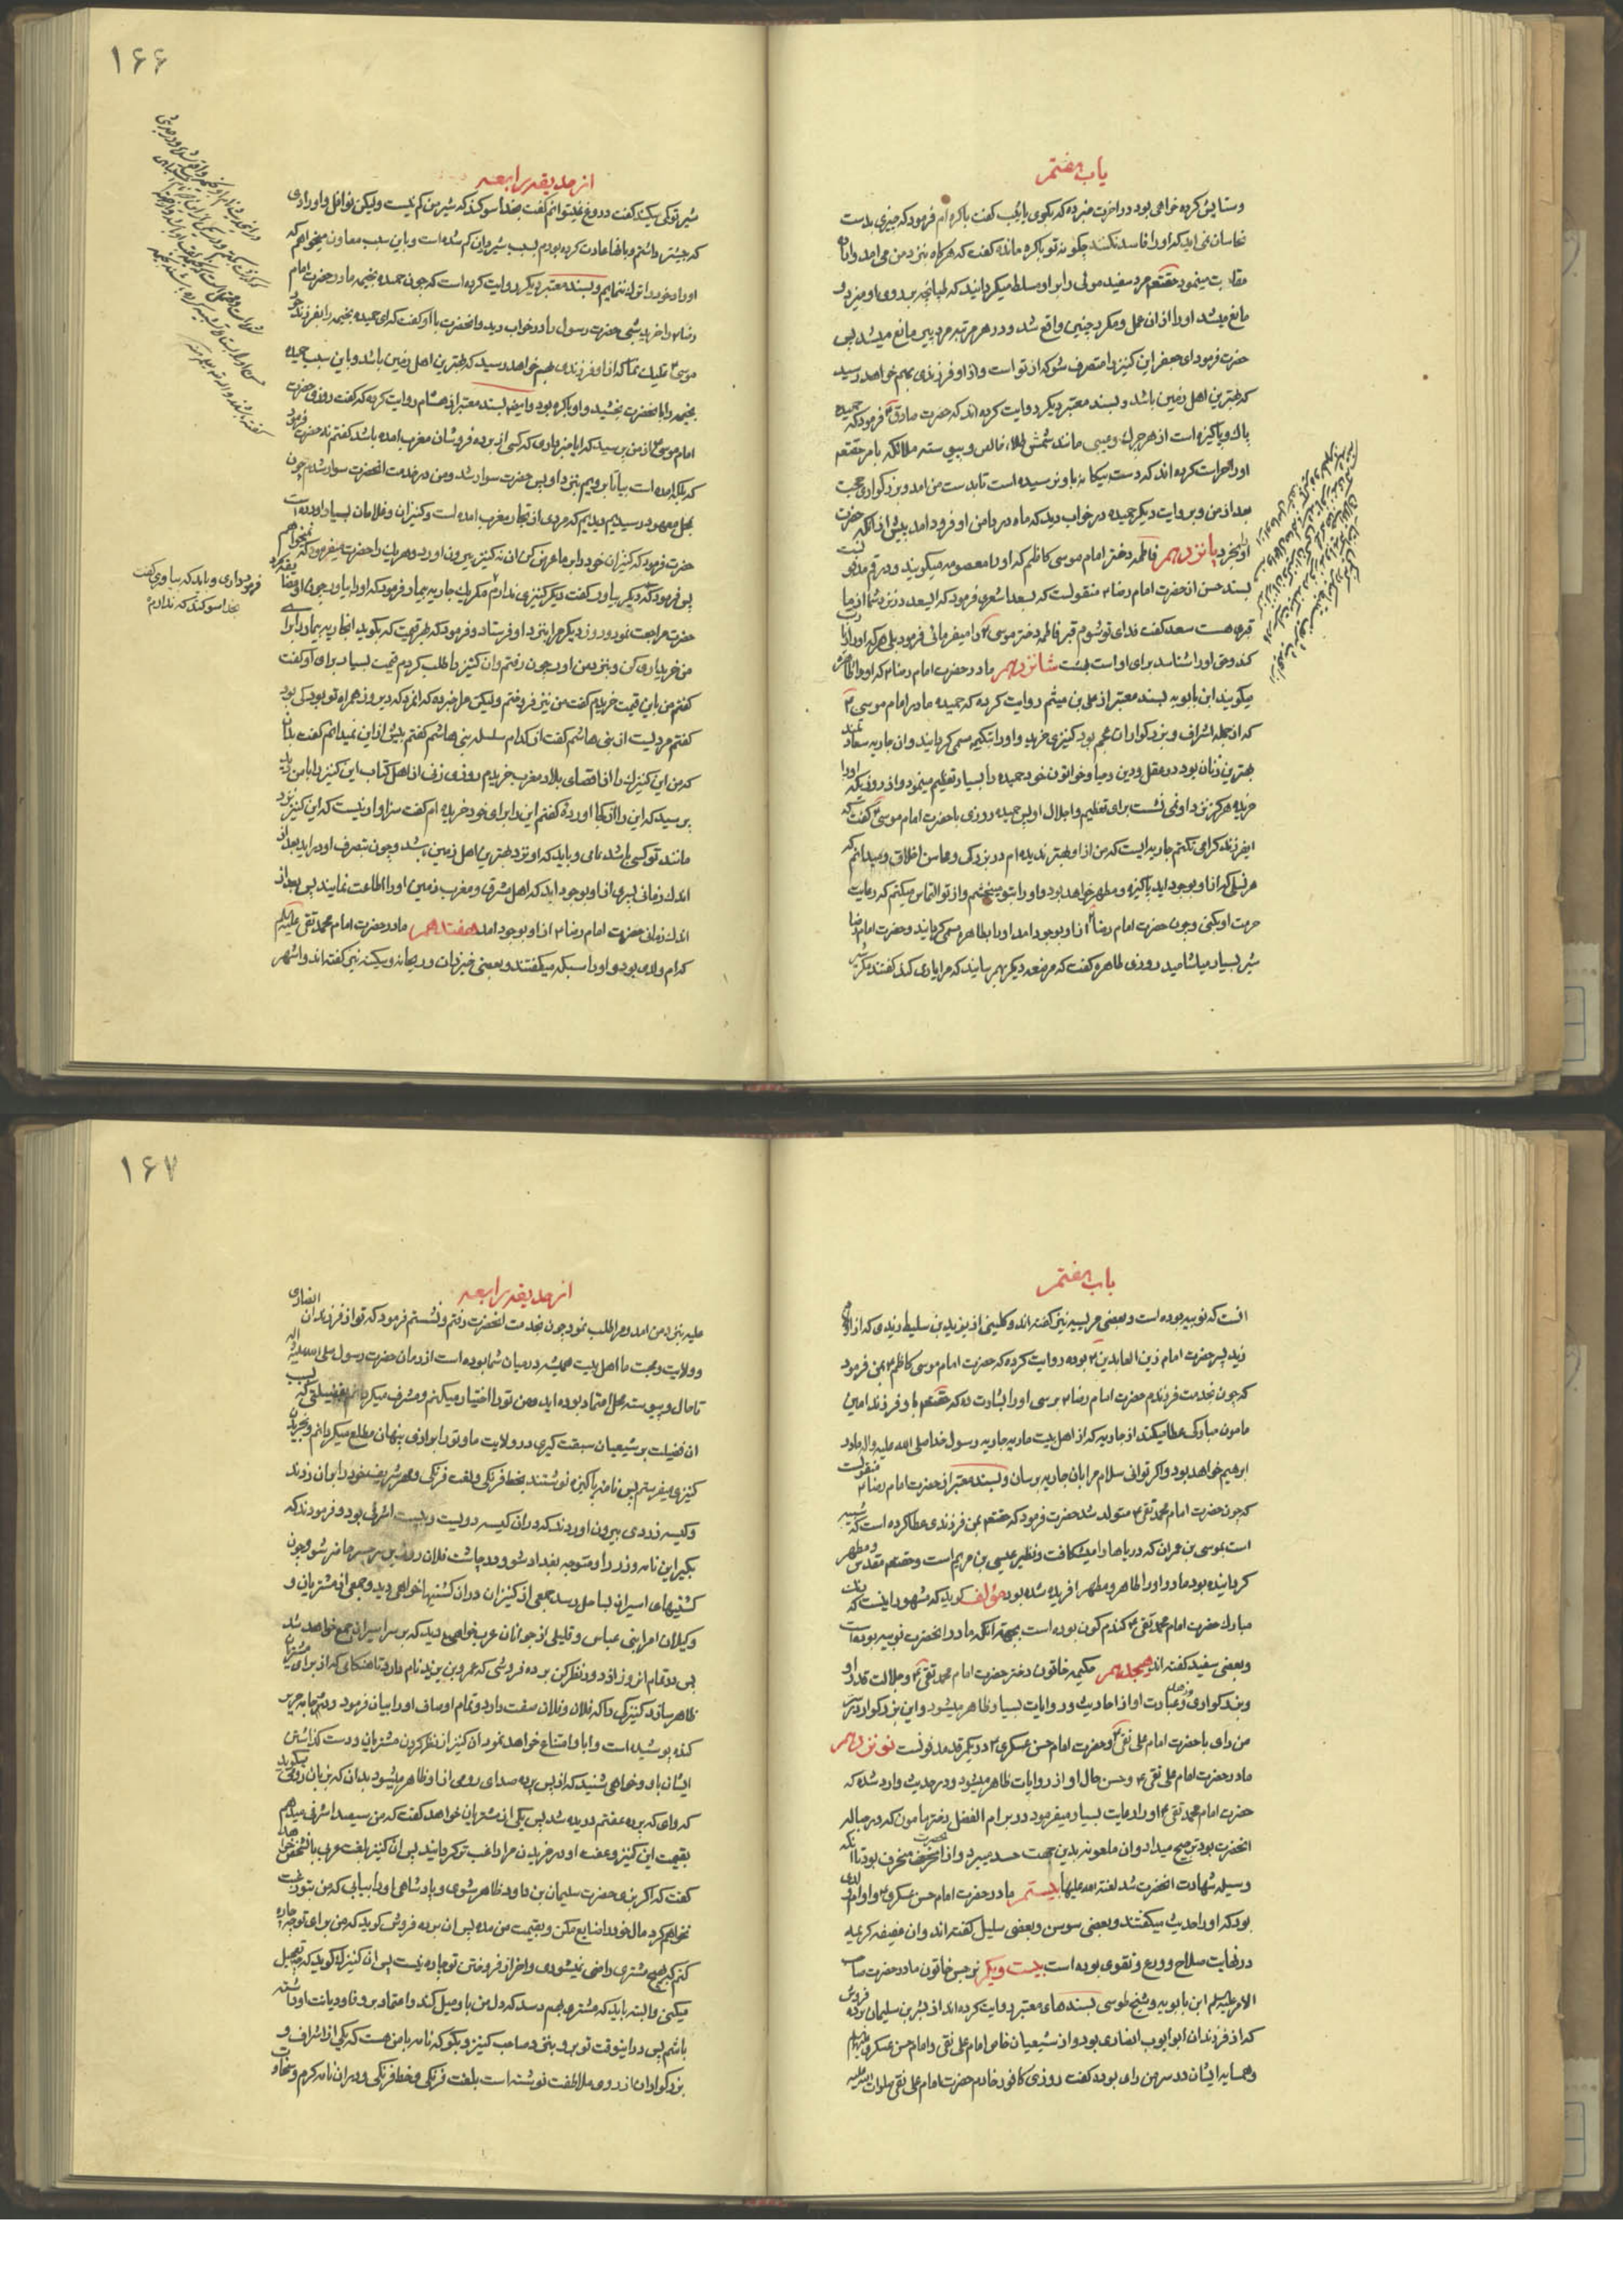 باب هفتم
وستایش کرده خواهی بود در اخرت خبر ده که بکری یا ثیب گفت باکره ام فرمود که چیزی بدست
نخاسان نمی اید که او را فاسد نکنند چگونه تو باکره مانده گفت که هرگاه نزد من می امد و اراده
مقاربت مینمود حقتعم مرد سفید موئی را بر او مسلط میگردانید که طپانچه بر روی او میزد و
مانع میشد او را از ان عمل و مکرر چنین واقع شد و در هر مرتبه مرد پیر مانع میشد پس
حضرت فرمود ای جعفر این کنیز را متصرف شو که از تو است و از او فرزندی بهم خواهد رسید
که بهترین اهل زمین باشد و بسند معتبر دیگر روایت کرده اند که حضرت صادق فرمود که حمیده
پاک و پاکیزه است از هر چرک و عیبی مانند شمش طلاء خالص و پیوسته ملائکه بامر حقتعم
او را حراست کرده اند که دست بیگانه باو نرسیده است تا بدست من امد و بزرگواری حجت
بعد از من و بروایت دیگر حمیده در خواب دید که ماه در دامن او فرود امد پیش از انکه حضرت
او را بخرد پانزدهم فاطمه دختر امام موسی کاظم که او را معصومه میگویند و در قم مدفونست
بسند حسن از حضرت امام رضا منقولست که بسعد اشعری فرمود که ای سعد در نزد شما از ما
قبری هست سعد گفت فدای تو شوم قبر فاطمه دختر موسی را میفرمائی فرمود بلی هر که او را زیارت
کند و حق او را شناسد برای او است بهشت شانزدهم مادر حضرت امام رضا که او را
میگویند ابن بابویه بسند معتبر از علی بن میثم روایت کرده که حمیده مادر امام موسی
که از جمله اشراف و بزرگواران عجم بود کنیزی خرید و او را تکتم مسمی گردانید و ان جاریه سعادتمند
بهترین زنان بود در عقل و دین و حیا و خواتون خود حمیده را بسیار تعظیم مینمود و از روزیکه او را
خریده هرگز نزد او نمی نشست برای تعظیم و اجلال او پس حمیده روزی با حضرت امام موسی گفت که
ایفرزند گرامی تکتم جاریه ایست که من از او بهتر ندیده ام در زیرکی و محاسن اخلاق و میدانم که
هر نسلی که از او بوجود اید پاکیزه و مطهر خواهد بود و او را بتو میبخشم و از تو التماس میکنم که رعایت
حرمت او بکنی و چون حضرت امام رضا از او بوجود امد او را بطاهره مسمی گردانید و حضرت امام رضا
شیر بسیار میاشامید روزی طاهره گفت که مرضعه دیگر بهم رسانید که مرا یاری کند گفتند مگر شیر
۱۶۶
از حدیقه رابعه
شیر تو کمی میکند گفت دروغ نمیتوانم گفت بخدا سوگند که شیر من کم نیست ولیکن نوافل و اورادی
که پیشتر داشتم و بانها عادت کرده بودم بسبب شیر دادن کم شده است و باین سبب معاون میخواهم که
اوراد خود را ترک ننمایم و بسند معتبر دیگر روایت کرده است که چون حمیده نجمه مادر حضرت امام
رضا را خرید شبی حضرت رسول را در خواب دید و انحضرت با او گفت که ای حمیده نجمه را بفرزند خود
موسی تملیک نما که از او فرزندی بهم خواهد رسید که بهترین اهل زمین باشد و باین سبب حمیده
نجمه را بانحضرت بخشید و او باکره بود و ایضا بسند معتبر از هشام روایت کرده که گفت روزی حضرت
امام موسی از من پرسید که ایا خبر داری که کسی از برده فروشان مغرب امده باشد گفتم نه حضرت فرمود
که بلکه امده است بیا تا برویم بنزد او پس حضرت سوار شد و من در خدمت انحضرت سوار شدم چون
بمحل معهود رسیدیم دیدیم که مردی از تجار مغرب امده است و کنیزان و غلامان بسیار اورده است
حضرت فرمود که کنیزان خود را بر ما عرض کن او نه کنیز بیرون اورد و هر یک را حضرت میفرمود که نمیخواهم
پس فرمود که دیگر بیاور گفت دیگر کنیزی ندارم مگر یک جاریه بیمار فرمود که او را بیاور چون او مضایقه کرد
فرمود داری و باید که بیاوری گفت
بخدا سوگند که ندارم
حضرت مراجعت نمود و روز دیگر مرا بنزد او فرستاد و فرمود که بهر قیمت که بگوید انجاریه بیمار را برای
من خریداری کن و بنزد من اور چون رفتم و ان کنیز را طلب کردم قیمت بسیار برای او گفت
گفتم من باین قیمت خریدم گفت من نیز فروختم ولیکن مرا خبر ده که انمرد که دیروز همراه تو بود کی بود
گفتم مردیست از بنی هاشم گفت از کدام سلسله بنی هاشم گفتم بیش از این نمیدانم گفت بدان
که من این کنیزک را از اقصای بلاد مغرب خریدم روزی زنی از اهل کتاب این کنیز را با من دید
پرسید که این را از کجا اورده گفتم این را برای خود خریده ام گفت سزاوار نیست که این کنیز نزد
مانند تو کسی باشد و باید که او نزد بهترین اهل زمین باشد و چون بتصرف او در اید بعد از
اندک زمانی پسری از او بوجود اید که اهل مشرق و مغرب زمین او را اطاعت نمایند پس بعد از
اندک زمانی حضرت امام رضا از او بوجود امد هفتدهم مادر حضرت امام محمد تقی علیه السلم
که ام ولدی بود و او را سبیکه میگفتند و بعضی خیزران و ریحانه و سکینه نیز گفته اند و اشهر
باب هفتم
انست که نوبیه بوده است و بعضی مریسیه نیز گفته اند و کلینی از یزید بن سلیط زیدی که از اولاد
زید پسر حضرت امام زین العابدین بوده روایت کرده که حضرت امام موسی کاظم بمن فرمود
که چون بخدمت فرزندم حضرت امام رضا برسی او را بشارت ده که حقتعم باو فرزند امین
مامون مبارکی عطا میکند از جاریه که از اهل بیت ماریه جاریه رسول خدا صلی الله علیه و اله مادر
ابرهیم خواهد بود و اگر توانی سلام مرا بان جاریه برسان و بسند معتبر از حضرت امام رضا منقولست
که چون حضرت امام محمد تقی متولد شد حضرت فرمود که حقتعم بمن فرزندی عطا کرده است که شبیه
است بموسی بن عمران که دریاها را میشکافت و نظیر عیسی بن مریم است و حقتعم مقدس و مطهر
گردانیده بود مادر او را طاهر و مطهر افریده شده بود مؤلف گوید که مشهور اینست که رنگ
مبارک حضرت امام محمد تقی گندم گون بوده است بجهة انکه مادر انحضرت نوبیه بوده است
و بعضی سفید گفته اند هیجدهم حکیمه خاتون دختر حضرت امام محمد تقی و جلالت قدر او
و بزرگواری و زهد و عبادت او از احادیث و روایات بسیار ظاهر میشود و این بزرگوار در سر
من رای با حضرت امام علی نقی و حضرت امام حسن عسکری در یکمرقد مدفونست نوزدهم
مادر حضرت امام علی نقی و حسن حال او از روایات ظاهر میشود و در حدیث وارد شده که
حضرت امام محمد تقی او را رعایت بسیار میفرمود و در بر ام الفضل دختر مامون که در حباله
انحضرت بود ترجیح میداد و ان ملعونه بدین جهت حسد میبرد و از انحضرت منحرف بود تا انکه
وسیله شهادت انحضرت شد لعنة الله علیها بیستم مادر حضرت امام حسن عسکری و او ام ولدی
بود که او را حدیث میگفتند و بعضی سوسن و بعضی سلیل گفته اند و ان عفیفه کریمه
در نهایت صلاح و ورع و تقوی بوده است بیست و یکم نرجس خاتون مادر حضرت صاحب
الامر علیه السلم ابن بابویه و شیخ طوسی بسندهای معتبر روایت کرده اند از بشر بن سلیمان برده فروش
که از فرزندان ابو ایوب انصاری بود و از شیعیان خاص امام علی نقی و امام حسن عسکری علیهما السلم
و همسایه ایشان در سر من رای بوده گفت روزی کافور خادم حضرت امام علی نقی صلوات الله علیه
۱۶۷
از حدیقه رابعه
علیه بنزد من امد و مرا طلب نمود چون بخدمت انحضرت رفتم و نشستم فرمود که تو از فرزندان انصاری
و ولایت و محبت ما اهل بیت همیشه در میان شما بوده است از زمان حضرت رسول صلی الله علیه و اله
تا حال و پیوسته محل اعتماد بوده اید و من تو را اختیار میکنم و مشرف میگردانم بفضیلتی که بسبب
ان فضیلت بر شیعیان سبقت گیری در ولایت ما و تو را برازی پنهان مطلع میگردانم و بخریدن
کنیزی میفرستم پس نامه پاکیزه نوشتند بخط فرنگی و لغت فرنگی و مهر شریف خود را بران زدند
و کیسه زردی بیرون اوردند که در ان کیسه دویست و بیست اشرفی بود و فرمودند که
بگیر این نامه و زر را و متوجه بغداد شو و در چاشت فلان روز بر سر جسر حاضر شو و چون
کشتیهای اسیران بساحل رسد جمعی از کنیزان در ان کشتیها خواهی دید و جمعی از مشتریان و
وکیلان امرا بنی عباس و قلیلی از جوانان عرب خواهی دید که بر سر اسیران جمع خواهند شد
پس در تمام انروز از دور نظر کن برده فروشی که عمرو بن یزید نام دارد تا هنگامی که از برای مشتریان
ظاهر سازد کنیزکی را که فلان و فلان صفت دارد و تمام اوصاف او را بیان فرمود و جامه حریر
کنده پوشیده است و ابا و امتناع خواهد نمود ان کنیز از نظر کردن مشتریان و دست گذاشتن
ایشان باو و خواهی شنید که از پس پرده صدای رومی از او ظاهر میشود بدان که بزبان رومی میگوید
که وای که پرده عفتم دریده شد پس یکی از مشتریان خواهد گفت که من سیصد اشرفی میدهم
بقیمت این کنیز و عفت او در خریدن مرا راغب تر گردانید پس ان کنیز بلغت عربی بانشخص خواهد
گفت که اگر بزی حضرت سلیمان بن داود ظاهر شوی و پادشاهی او را بیابی که من بتو رغبت
نخواهم کرد مال خود را ضایع مکن و بقیمت من مده پس ان برده فروش گوید که من برای تو چه چاره
کنم که بهیچ مشتری راضی نمیشوی و اخر از فروختن تو چاره نیست پس ان کنیزک گوید که چه تعجیل
میکنی والبته باید که مشتری بهم رسد که دل من باو میل کند و اعتماد بر وفا و دیانت او داشته
باشم پس در اینوقت تو برو بنزد صاحب کنیز و بگو که نامه با من هست که یکی از اشراف و
بزرگواران از روی ملاطفت نوشته است بلغت فرنگی و خط فرنگی و در ان نامه کرم و سخاوت